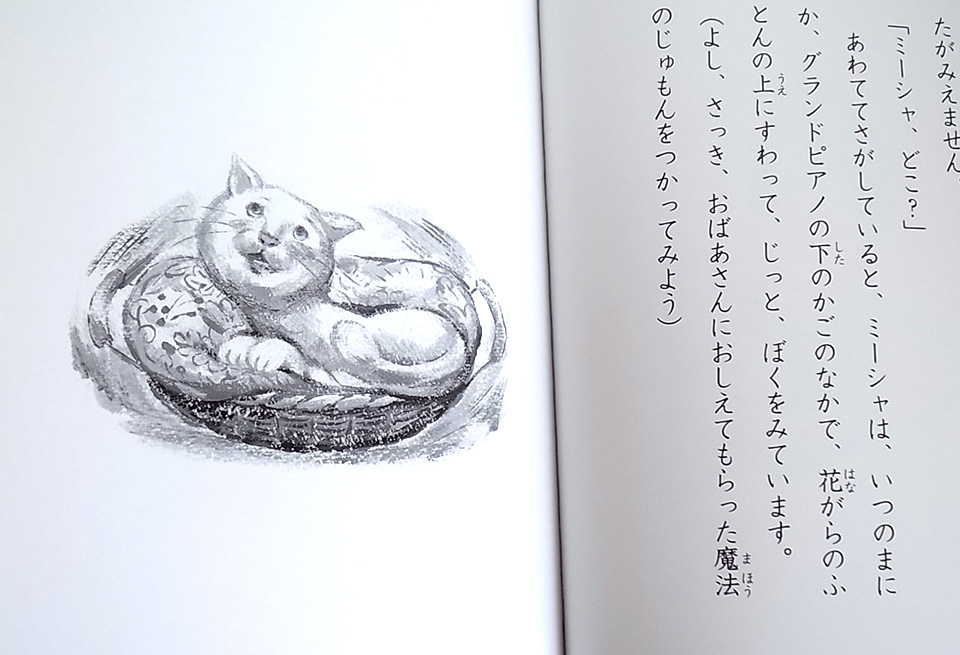 たがみえません。
「ミーシャ、どこ？」
あわててさがしていると、ミーシャは、いつのまに
か、グランドピアノの下のかごのなかで、花がらのふ
とんの上にすわって、じっと、ぼくをみています。
（よし、さっき、おばあさんにおしえてもらった魔法
のじゅもんをつかってみよう）